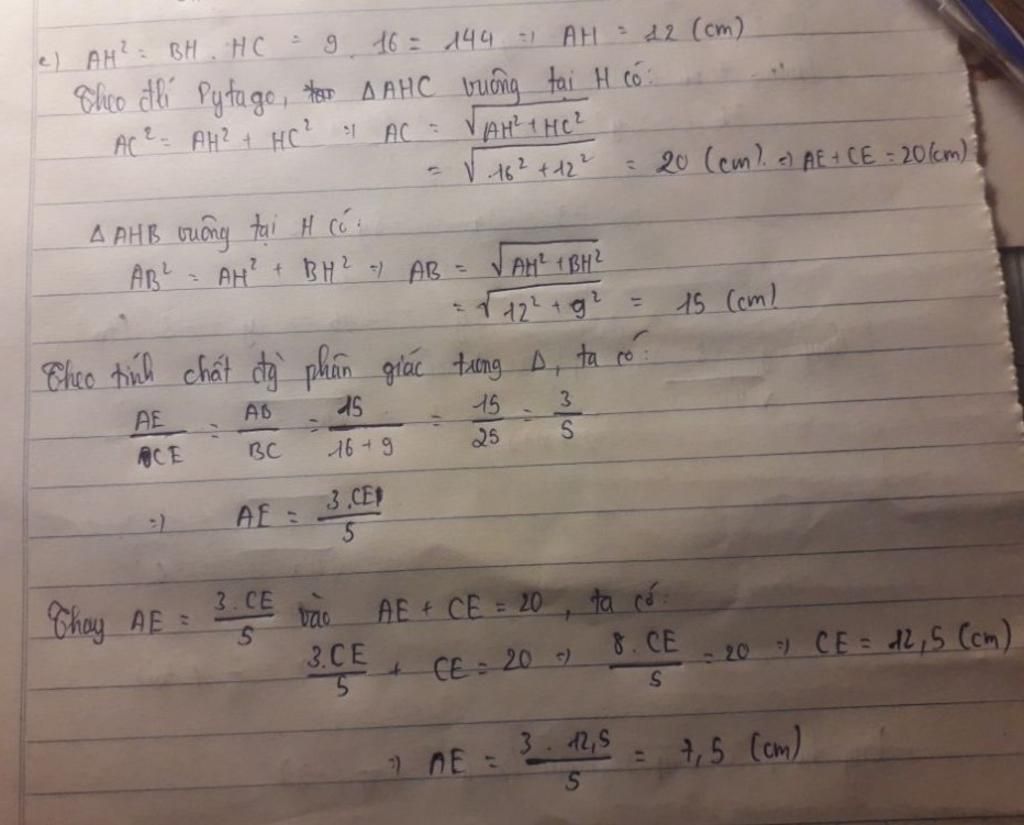 c) AH² = BH . HC = 9 . 16 = 144 => AH = 12 (cm)
Theo đlí Pytago, ΔAHC vuông tại H có:
AC² = AH² + HC² => AC = √(AH² + HC²)
= √(16² + 12²) = 20 (cm). => AE + CE = 20 (cm)
Δ AHB vuông tại H có:
AB² = AH² + BH² => AB = √(AH² + BH²)
= √(12² + 9²) = 15 (cm)
Theo tính chất đg phân giác trong Δ, ta có:
AE/CE = AB/BC = 15/(16 + 9) = 15/25 = 3/5
=> AE = 3.CE/5
Thay AE = 3.CE/5 vào AE + CE = 20, ta có:
3.CE/5 + CE = 20 => 8.CE/5 = 20 => CE = 12,5 (cm)
=> AE = 3 . 12,5/5 = 7,5 (cm)